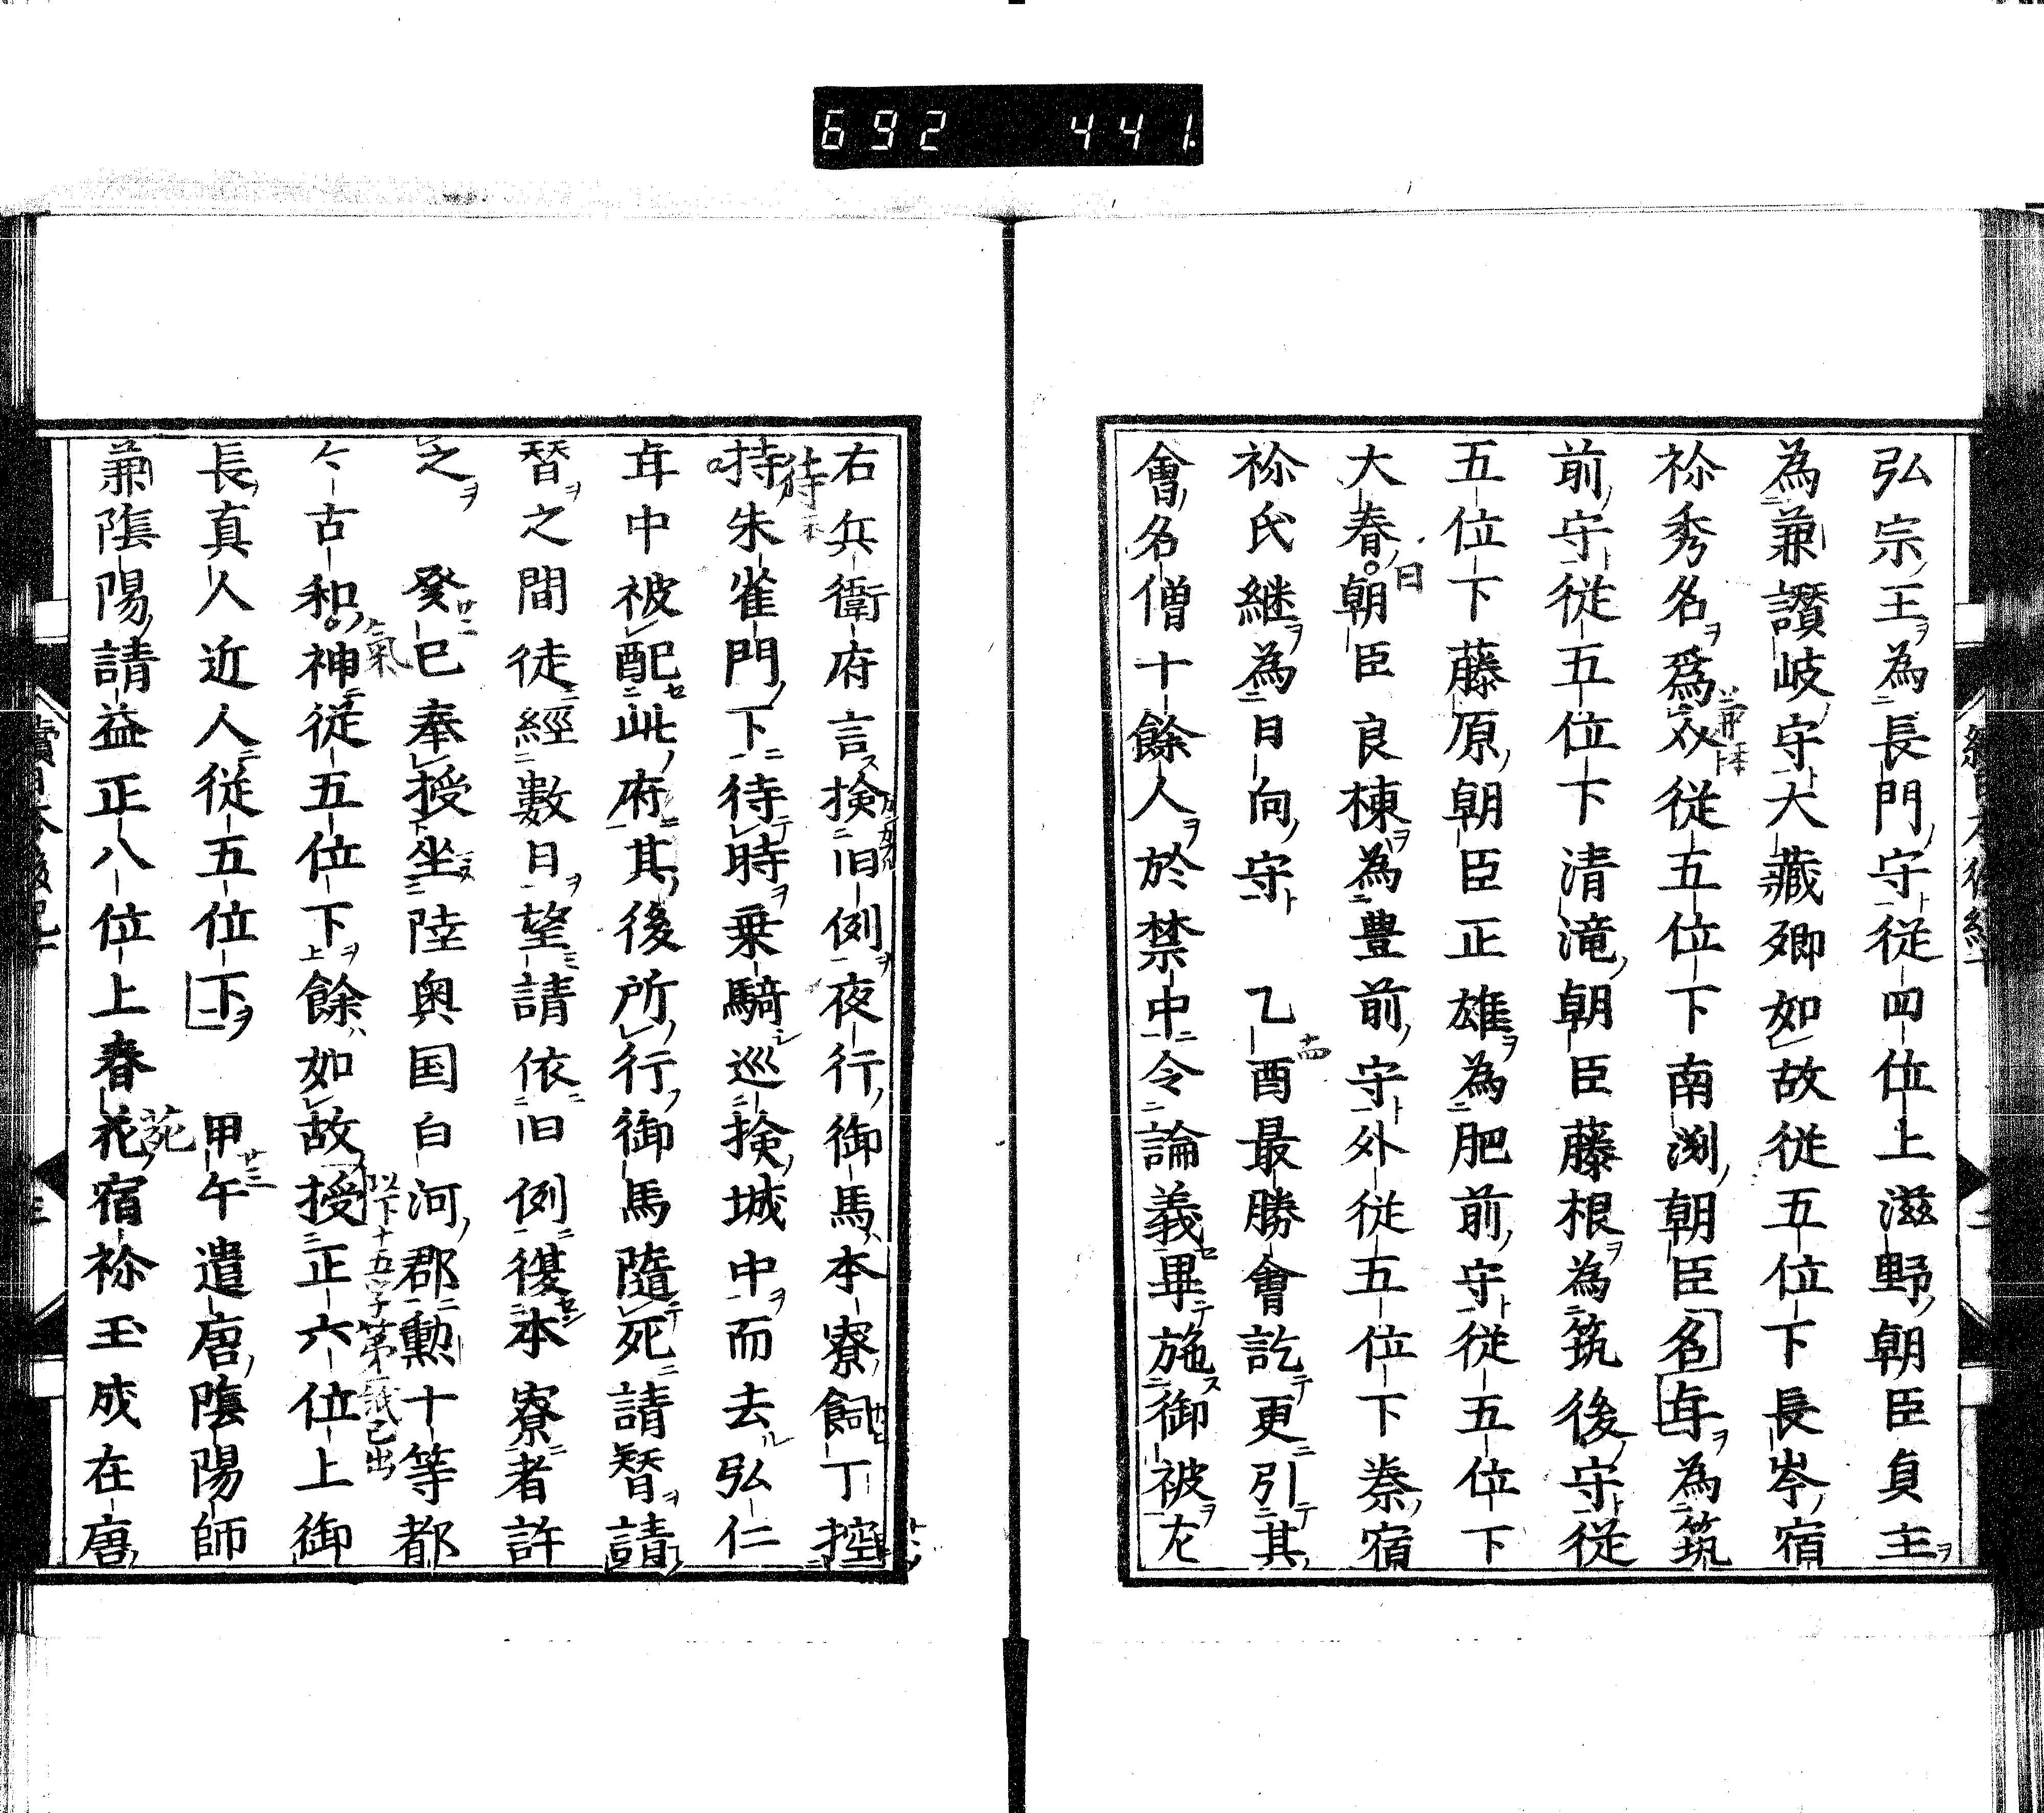 692 441
弘宗王為長門守従四位上滋野朝臣貞主
為兼讃岐守大藏卿如故従五位下長岑宿
祢秀名爲次従五位下南渕朝臣名年為筑
前守従五位下清滝朝臣藤根為筑後守従
五位下藤原朝臣正雄為肥前守従五位下
大春朝臣良棟為豊前守外従五位下秦宿
日
祢氏継為日向守 乙酉最勝會訖更引其
十四
會名僧十餘人於禁中令論義畢施御被左
右兵衛府言検旧例夜行御馬本寮飼丁控
持朱雀門下待時乗騎巡検城中而去弘仁
待
年中被配此府其後所行御馬隨死請替請
替之間徒經數日望請依旧例復本寮者許
之 癸巳奉授坐陸奥国白河郡勲十等都
廿二
々古和神従五位下餘如故授正六位上御
氣
以下十五字第
已出
長真人近人従五位下 甲午遣唐陰陽師
廿三
兼陰陽請益正八位上春花宿祢玉成在唐
苑